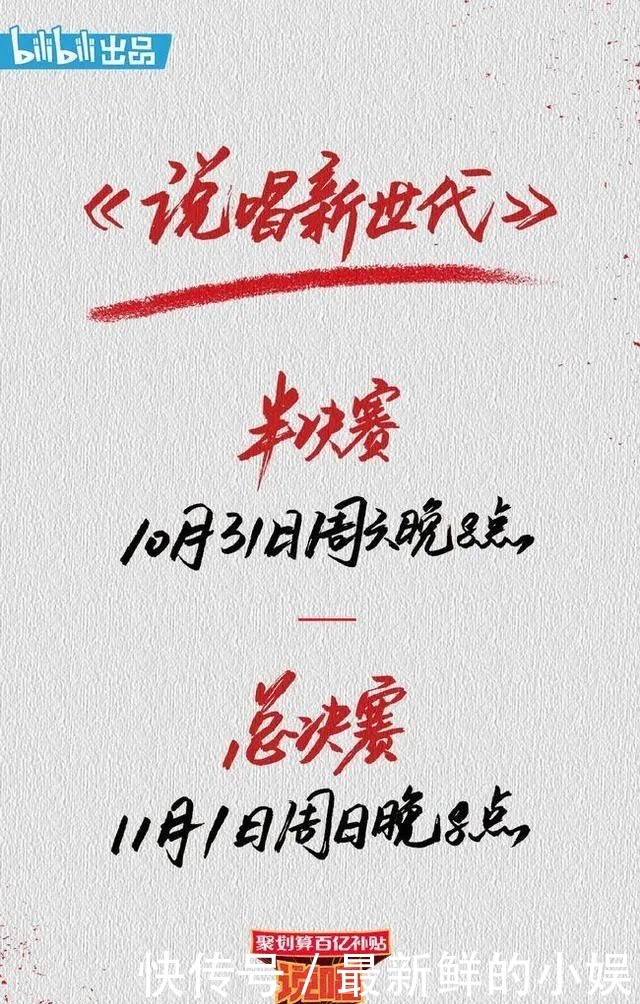 bilibili出品
《说唱新世代》
半决赛
10月31日周六晚8点
总决赛
11月1日周日晚8点
聚划算百亿补贴
快传号/最新鲜的小娱